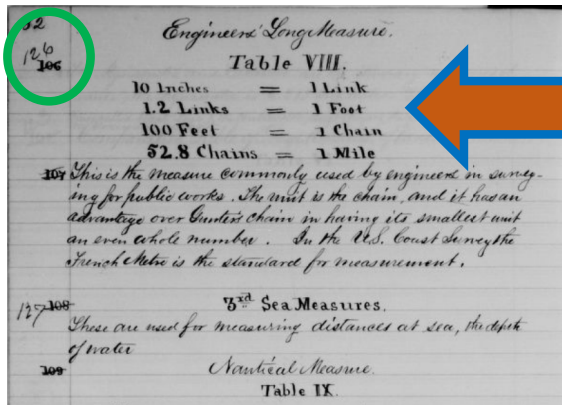 32
Engineers' Long Measure.
126
106
Table VIII.
10 Inches = 1 Link
1.2 Links = 1 Foot
100 Feet = 1 Chain
52.8 Chains = 1 Mile
107 This is the measure commonly used by engineers in survey-
ing for public works. The unit is the chain, and it has an
advantage over Gunters chain in having its smallest unit
an even whole number. In the U.S. Coast Survey the
French Metre is the standard for measurement.
127 108 3rd Sea Measures.
These are used for measuring distances at sea, the depth
of water
109 Nautical Measure.
Table IX.